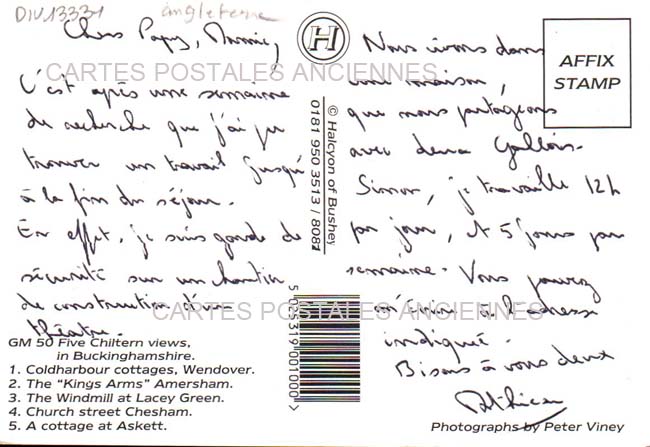 DIV13331 angleterre
Chers Papy, Mamie,
C'est après une semaine
de recherche que j'ai pu
trouver un travail jusqu'
à la fin du séjour.
En effet, je suis garde de
sécurité sur un chantier
de construction d'un
théatre.
GM 50 Five Chiltern views,
in Buckinghamshire.
1. Coldharbour cottages, Wendover.
2. The "Kings Arms" Amersham.
3. The Windmill at Lacey Green.
4. Church street Chesham.
5. A cottage at Askett.
H
© Halcyon of Bushey
0181 950 3513 / 8081
5 025319 001000
AFFIX
STAMP
Nous vivons dans
une maison,
que nous partageons
avec deux Gallois.
Sinon, je travaille 12h
par jour, et 5 jours par
semaine. Vous pouvez
m'écrire à l'adresse
indiquée.
Bisous à vous deux
Photographs by Peter Viney
CARTES POSTALES ANCIENNES
CARTES POSTALES ANCIENNES